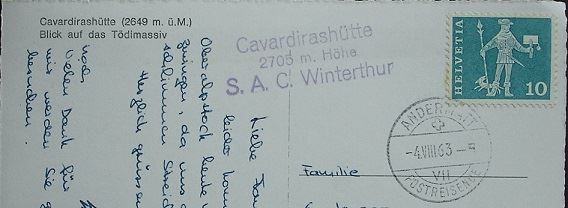 Cavardirashütte (2649 m. ü.M.)
Blick auf das Tödimassiv
Cavardirashütte
2705 m. Höhe
S. A. C. Winterthur
HELVETIA
10
ANDERMATT
-4.VIII.63-5
VII
POSTREISENDE
Liebe Fam
leider kon
Oberalpstock heute
zwingen, da uns
schlimmen Streich
Herzlich grüssen
Vielen Dank für
wir werden Sie g
besuchen.
Familie